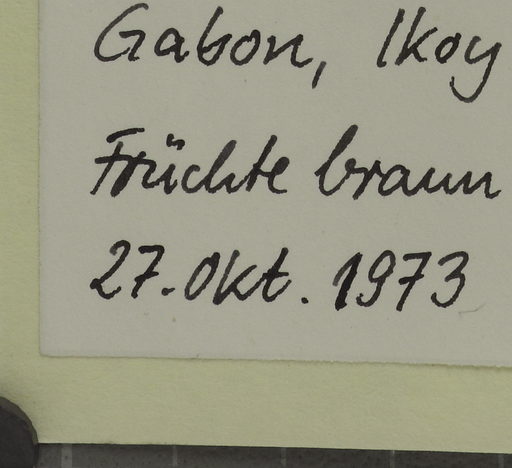 Gabon, Ikoy
Früchte braun
27. Okt. 1973